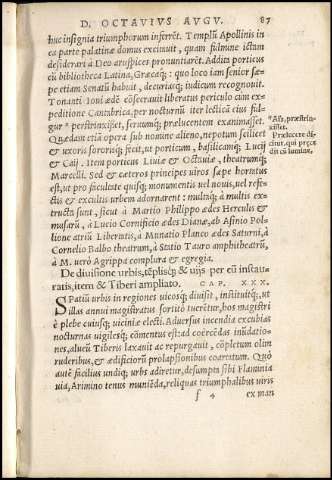 D. OCTAVIVS AVGV. 87
huc insignia triumphorum inferrẽt. Templũ Apollinis in
ea parte palatinæ domus excitauit, quam fulmine ictam
desiderari à Deo aruspices pronuntiarẽt. Addita porticus
cũ bibliotheca Latina, Græcaq́;: quo loco iam senior sæ-
pe etiam Senatũ habuit, decuriasq́; iudicum recognouit.
Tonanti Ioui ædẽ cõsecrauit liberatus periculo cùm ex-
peditione Cantabrica, per nocturnũ iter lecticã eius ful-
gur * perstrinxisset, seruumq́; prælucentem exanimasset.
Quædam etiã opera sub nomine alieno, nepotum scilicet
& uxoris sororisq́; fecit, ut porticum, basilicamq́; Lucij
& Caij. Item porticus Liuiæ & Octauiæ, theatrumq́;
Marcelli. Sed & cæteros principes uiros sæpe hortatus
est, ut pro facultate quisq́; monumentis uel nouis, uel refe-
ctis & excultis urbem adornarent: multaq́; à multis ex-
tructa sunt, sicut à Martio Philippo ædes Herculis &
musarũ, à Lucio Cornificio ædes Dianæ, ab Asinio Polio
lione atriũ Libertatis, à Munatio Planco ædes Saturni, à
Cornelio Balbo theatrum, à Statio Tauro amphiteatrũ,
à M. uerò Agrippa complura & egregia.
De diuisione urbis, tẽplisq́; & uijs per eũ instau-
ratis, item & Tiberi ampliato. CAP. XXX.
Spatiũ urbis in regiones uicosq́; diuisit, instituitq́;, ut
illas annui magistratus sortitò tuerẽtur, hos magistri
è plebe cuiusq́; uiciniæ electi. Aduersus incendia excubias
nocturnas uigilesq́; cõmentus est: ad coërcẽdas inũdatio-
nes, alueũ Tiberis laxauit ac repurgauit, cõpletum olim
ruderibus, & ædificiorũ prolapsionibus coarctatum. Quò
autẽ facilius undiq́; urbs adiretur, desumpta sibi Flaminia
uia, Arimino tenus muniẽda, reliquas triumphalibus uiris
f 4 ex man
* Als, præstrin-
xisset.
Prælucere di-
citur, qui præce
dit cũ lumine.